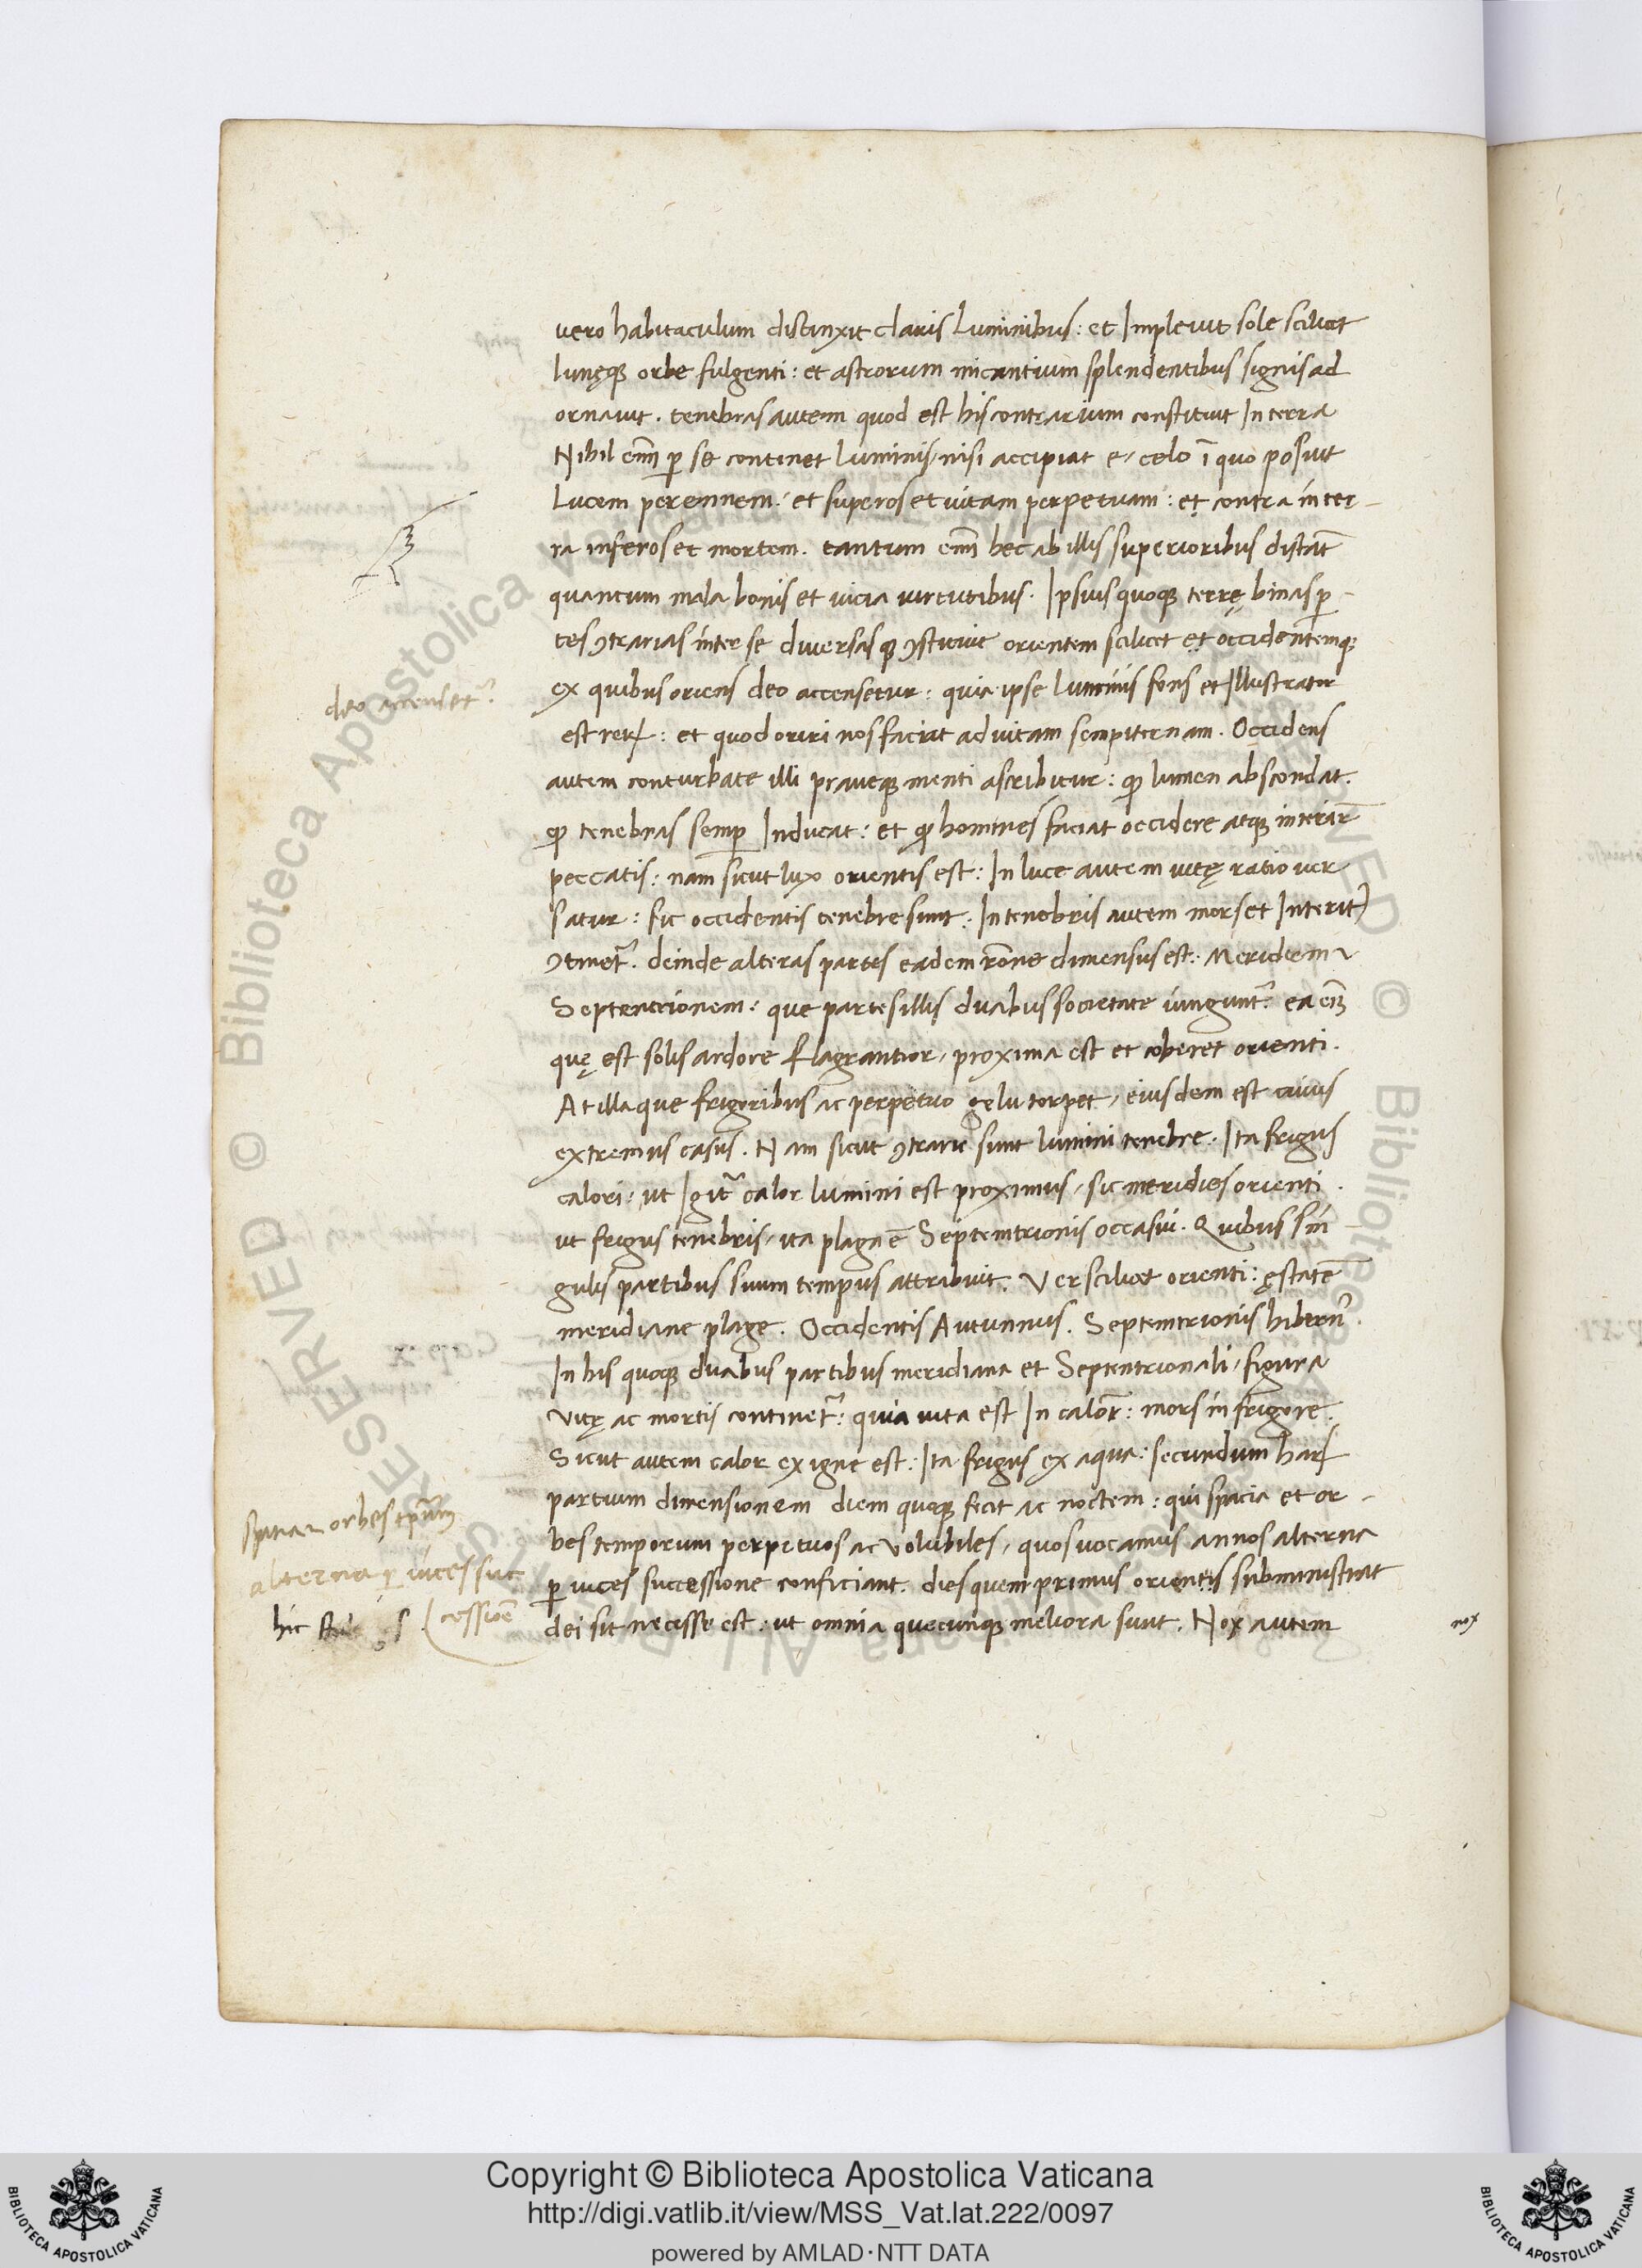 vero habitaculum distinxit claris Luminibus : et Implevit sole scilicet
lunęq; orbe fulgenti : et astrorum micantium splendentibus signis ad
ornavit . tenebras autem quod est his contrarium constituit In terra
Nihil eni͞m p̱ se continet Luminis / nisi accipiat e / celo ĩ quo posuit
Lucem perennem : et superos et vitam perpetuam : et contra in ter -
ra inferos et mortem . tantum eni͞m hec ab illis superioribus distãt
quantum mala bonis et vicia virtutibus . Ipsius quoq; terrę binas p̱ -
tes ꝯtrarias inter se diversasq; ꝯstituit orientem scilicet et occidentemq;
ex quibus oriens deo accensetur : quia ipse Luminis fons et Illustrator
est reꝝ : et quod oriri nos faciat ad vitam sempiternam . Occidens
autem conturbate illi praveq; menti ascribitur : ꝙ lumen abscondat .
ꝙ tenebras semp̱ Inducat : et ꝙ homines faciat occidere atq; interir̃
peccatis : nam sicut lux orientis est : In luce autem vitę ratio ver
satur : sic occidentis tenebre sunt : In tenebris autem mors et Interitꝰ
ꝯtinet᷑ . deinde alteras partes eadem rõne dimensus est : Meridiem ⁊
Septentrionem : que partes illis duabus societate iungunt᷑ . ea eñ
quę est solis ardore flagrantior / proxima est et coheret orienti .
At illa que frigoribus ac perpetuo gelu torpet / eiusdem est cuius
extremus casus . Nam sicut ꝯtrarie sunt lumini tenebre . Ita frigus
calori : ut Igit᷑ calor lumini est proximus / sic meridies orienti .
ut frigus tenebris / ita plaga ẽ Septemtrionis occasui . Quibus sin
gulis partibus suum tempus attribuit . Ver scilicet orienti : ęstatẽ
meridiane plage . Occidentis Autumnus . Septemtrionis hibern᷑ .
In his quoq; duabus partibus meridiana et Septentrionali / figura
vitę ac mortis continet᷑ : quia vita est In calor̃ : mors in frigore .
Sicut autem calor ex igne est : Ita frigus ex aqua : secundum haꝝ
partium dimensionem diem quoq; fecit ac noctem : qui spacia et or -
bes temporum perpetuos ac volubiles / quos vocamus annos alterna
p̱ vices successione conficiant . dies quem primus orientis subministrat
dei sit necesse est : ut omnia quecunq; meliora sunt . Nox autem
deo accenset᷑
spatia ⁊ orbes tp̃um
alterna p̱ vices suc
cessioẽ
hic
nox
Copyright © Biblioteca Apostolica Vaticana
http://digi.vatlib.it/view/MSS_Vat.lat.222/0097
powered by AMLAD·NTT DATA
BIBLIOTECA APOSTOLICA VATICANA
BIBLIOTECA APOSTOLICA VATICANA